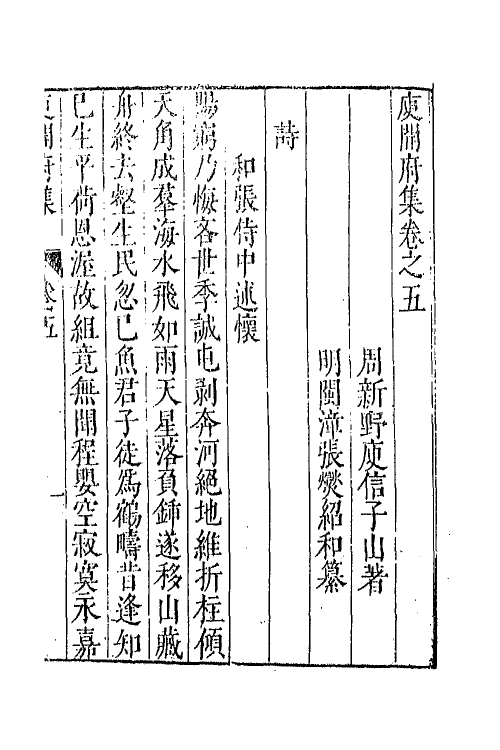 庾開府集卷之五
周新野庾信子山著
明閩漳張燮紹和纂
詩
和張侍中述懷
陽窮乃悔吝世季誠屯剥奔河絕地維折柱傾
天角成羣海水飛如雨天星落負鍤遂移山藏
舟終去壑生民忽已魚君子徒為鶴疇昔逢知
已生平荷恩渥故組竟無聞程嬰空寂寞永嘉
庾開府集 卷五 一